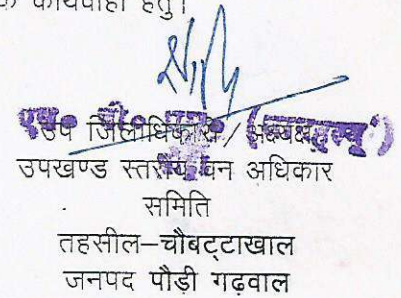 क कार्यवाही हेतु।
उप जिलाधिकारी / अध्यक्ष
उपखण्ड स्तरीय वन अधिकार
समिति
तहसील–चौबट्टाखाल
जनपद पौड़ी गढ़वाल